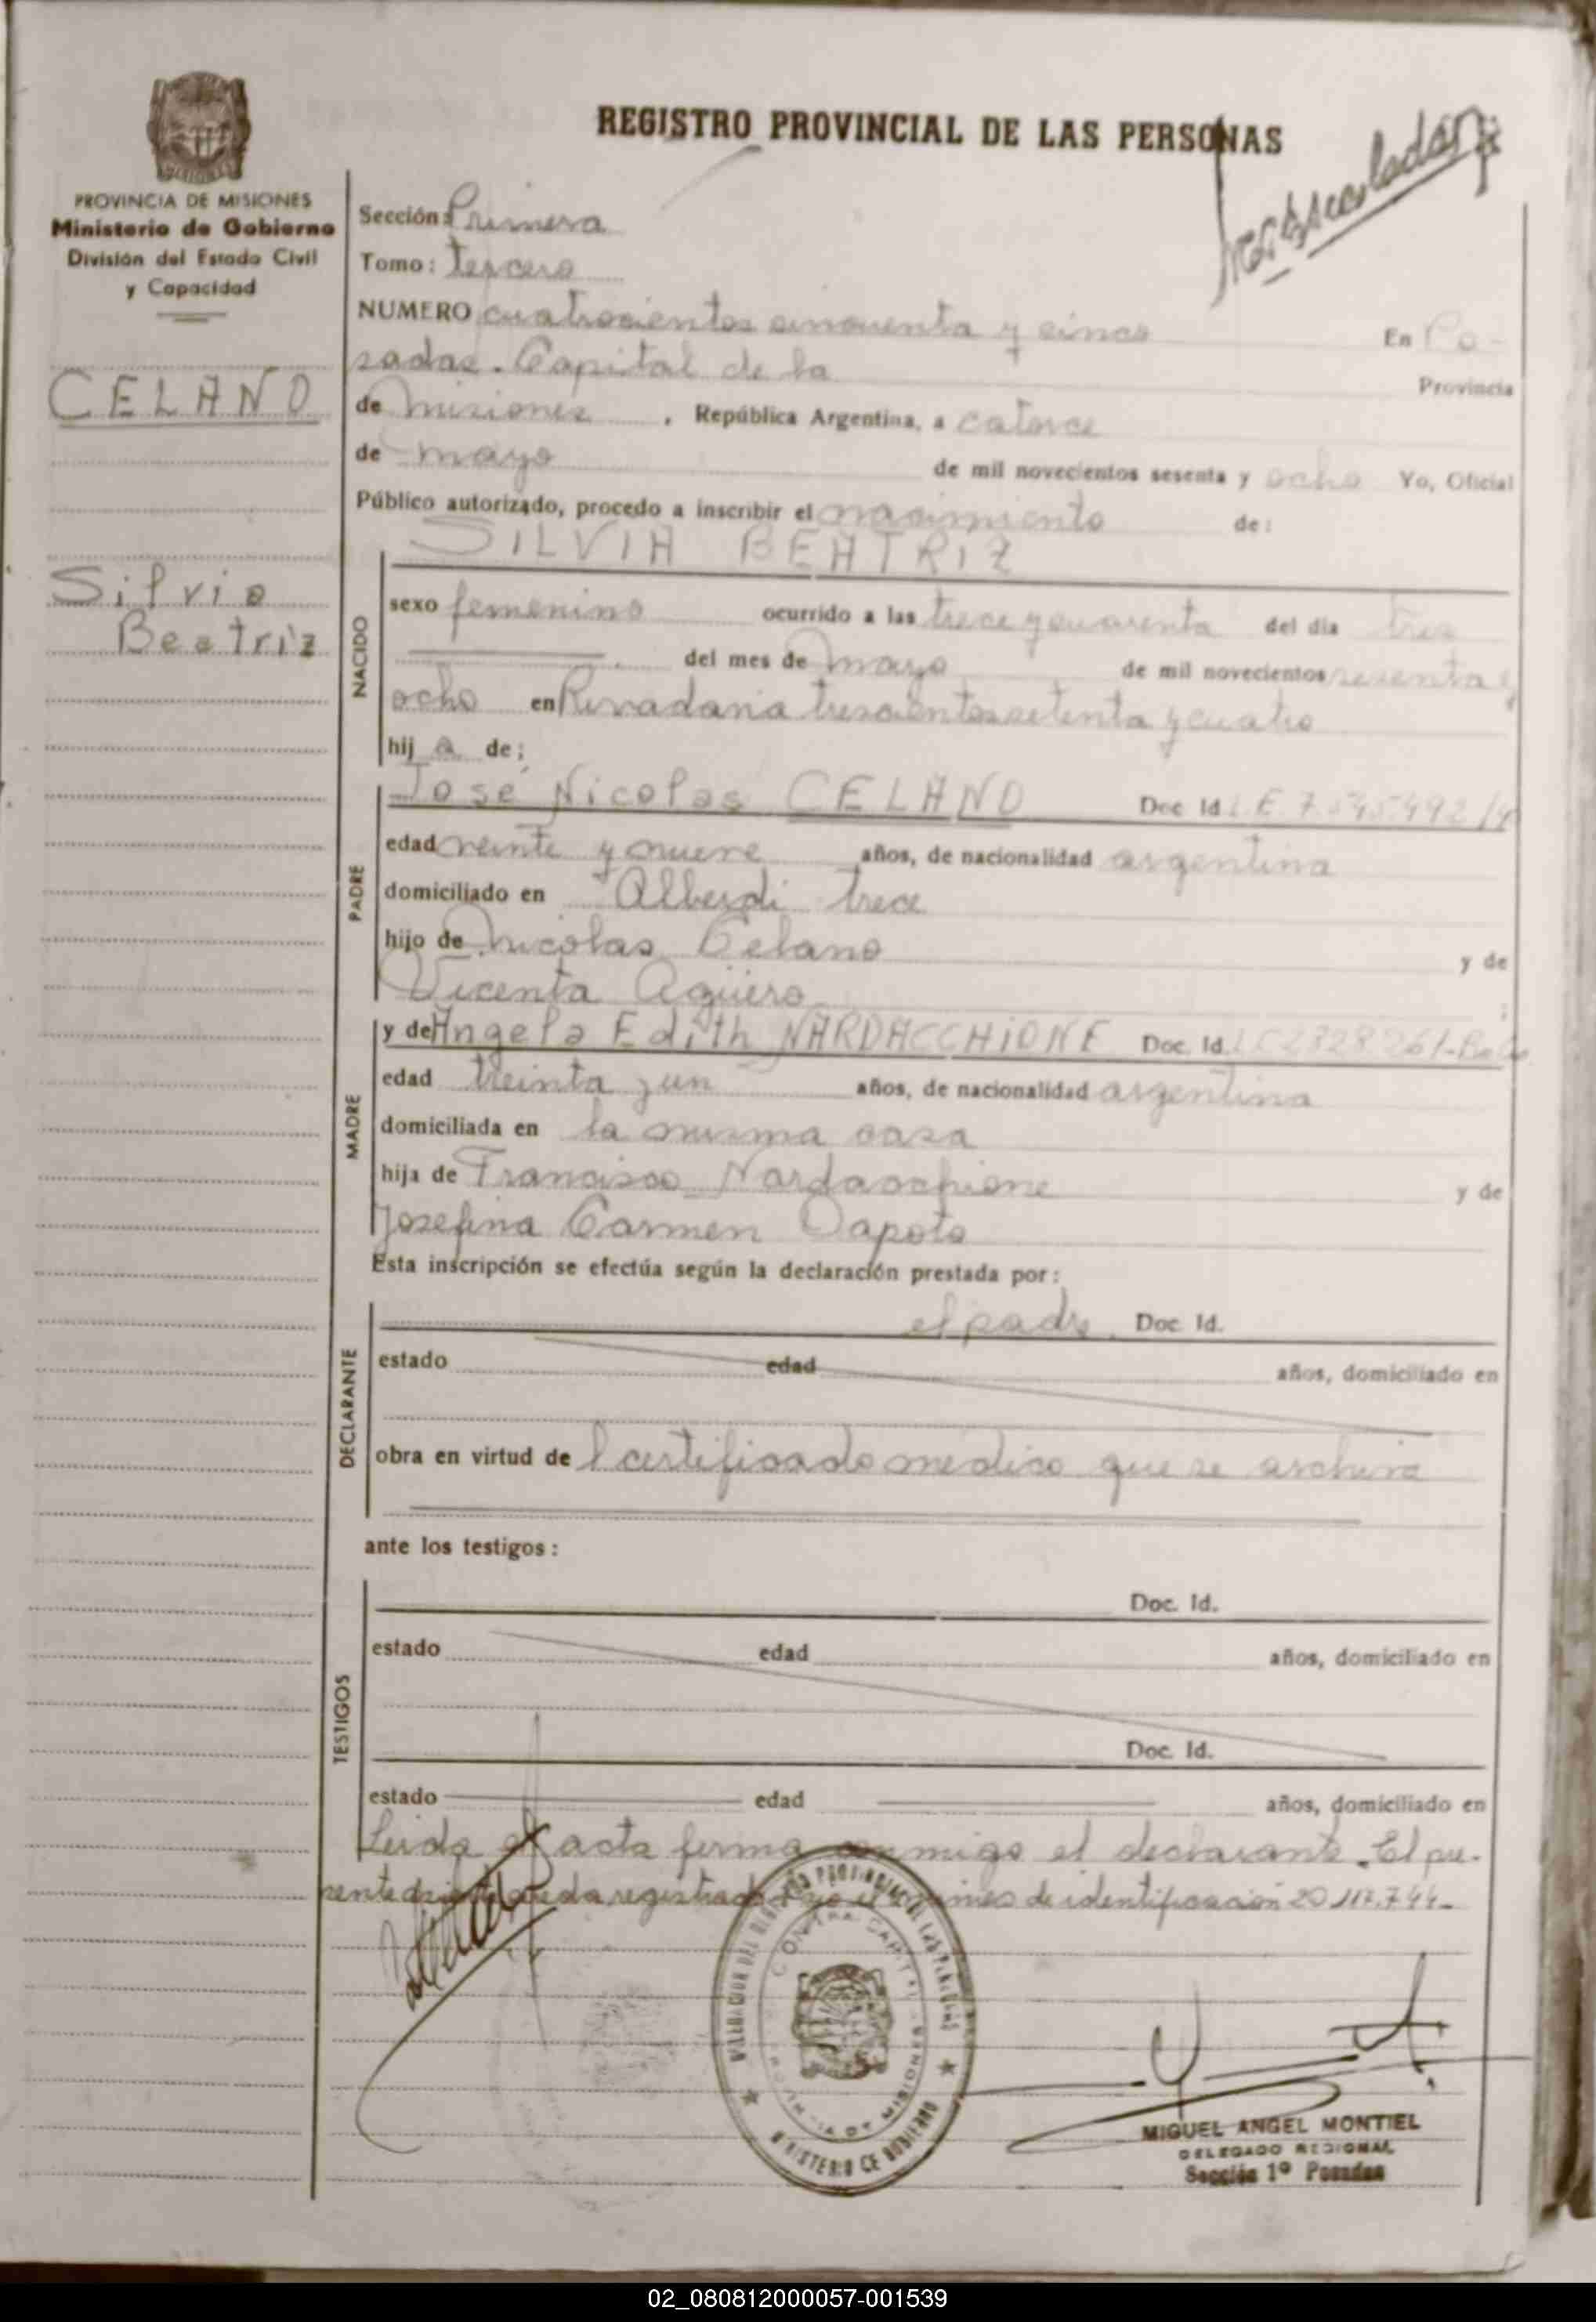 REGISTRO PROVINCIAL DE LAS PERSONAS
PROVINCIA DE MISIONES
Ministerio de Gobierno
División del Estado Civil
y Capacidad
CELANO
Silvia
Beatriz
Sección: Primera
Tomo: Tercero
NUMERO cuatrocientos cincuenta y cinco En Po-
sadas. Capital de la Provincia
de Misiones, República Argentina, a catorce
de mayo de mil novecientos sesenta y ocho Yo, Oficial
Público autorizado, procedo a inscribir el nacimiento de:
SILVIA BEATRIZ
NACIDO
sexo femenino ocurrido a las trece y cuarenta del día tres
del mes de Mayo de mil novecientos sesenta y
ocho en Rivadavia trescientos setenta y cuatro
hij a de;
PADRE
José Nicolas CELANO Doc Id L.E. 7.545.492
edad veinte y nueve años, de nacionalidad argentina
domiciliado en Alberdi trece
hijo de Nicolas Celano y de
Vicenta Agüero
MADRE
y de Angela Edith NARDACCHIONE Doc. Id. LC 2328261
edad treinta y un años, de nacionalidad argentina
domiciliada en la misma casa
hija de Francisco Nardacchione y de
Josefina Carmen Dapoto
Esta inscripción se efectúa según la declaración prestada por:
DECLARANTE
el padre. Doc. Id.
estado edad años, domiciliado en
obra en virtud de l certificado medico que se archiva
ante los testigos:
TESTIGOS
Doc. Id.
estado edad años, domiciliado en
Doc. Id.
estado edad años, domiciliado en
Leida el acta firma conmigo el declarante. El pre-
sente asiento queda registrado bajo el número de identificación 20.117.744-
MINISTERIO DE GOBIERNO
MIGUEL ANGEL MONTIEL
DELEGADO REGIONAL
Sección 1º Posadas
02_080812000057-001539